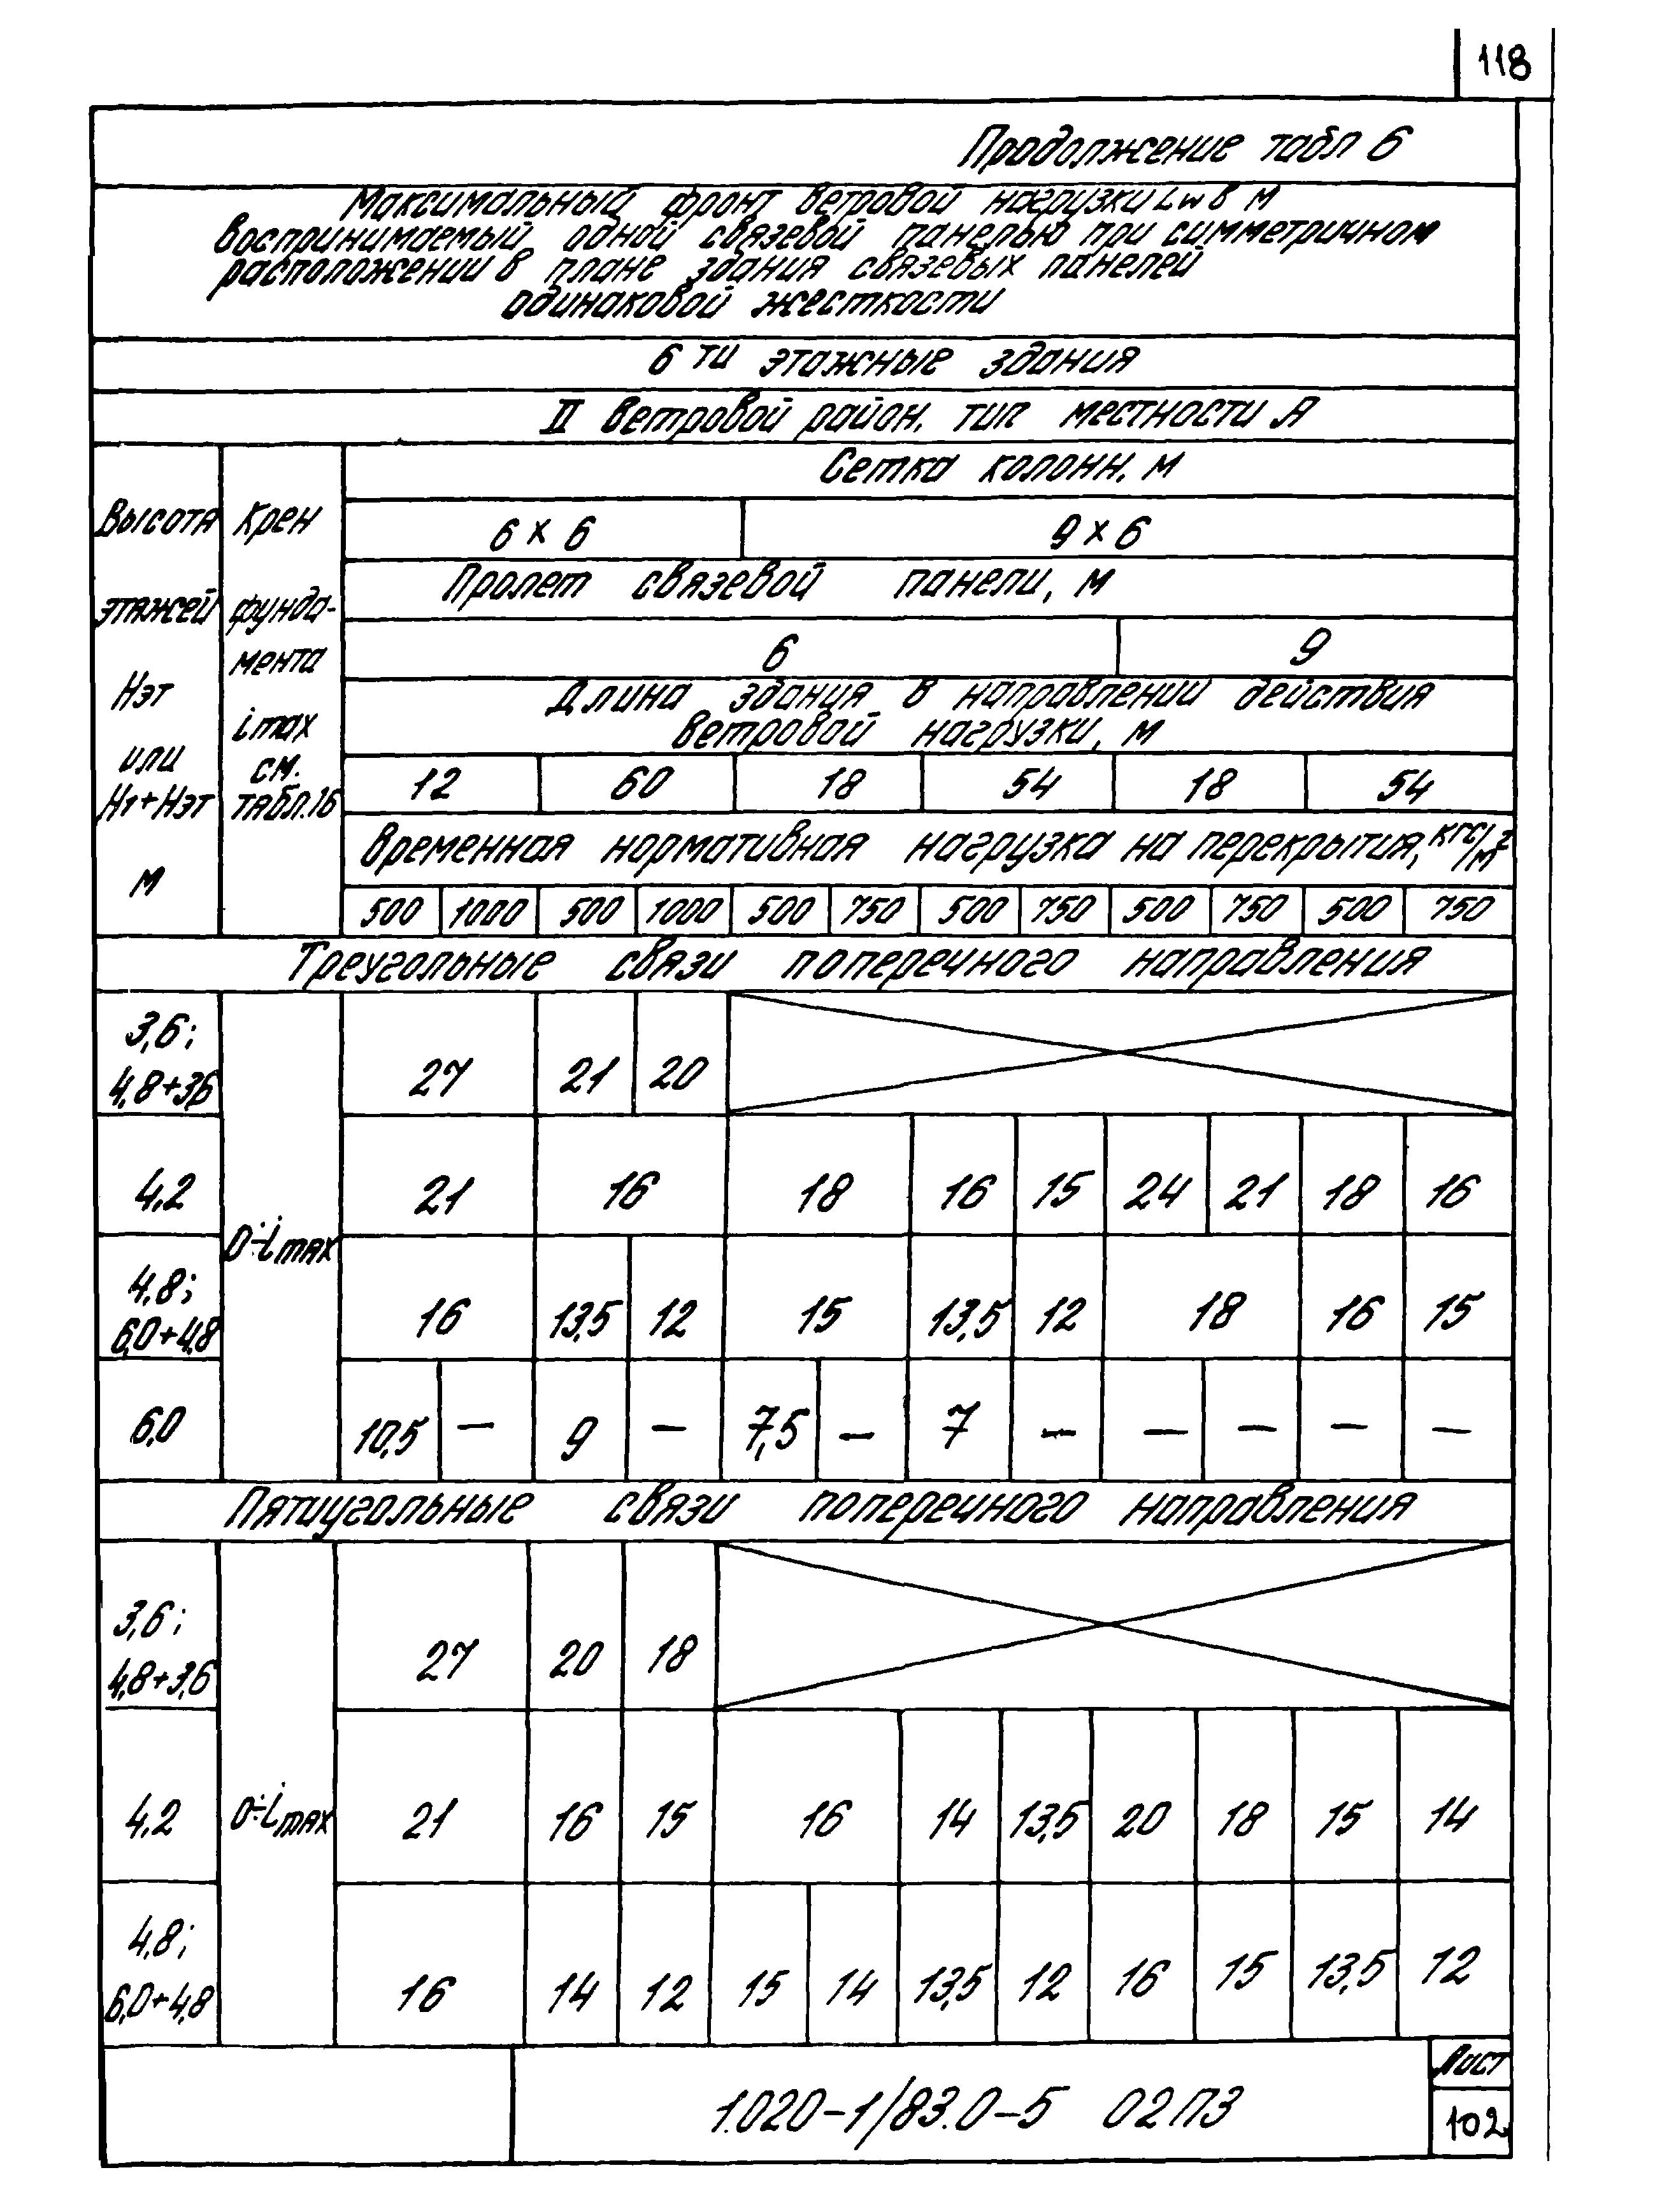 118
Продолжение табл 6
Максимальный фронт ветровой нагрузки Lw в м
воспринимаемый одной связевой панелью при симметричном
расположении в плане здания связевых панелей
одинаковой жесткости
6 ти этажные здания
II ветровой район. тип местности А
Высота этажей Нэт или Н1+Нэт м
Крен фунда- мента imax см. табл.16
Сетка колонн, м
6 х 6 9 х 6
Пролет связевой панели, м
6 9
Длина здания в направлении действия
ветровой нагрузки, м
12 60 18 54 18 54
Временная нормативная нагрузка на перекрытия, кгс/м²
500 1000 500 1000 500 750 500 750 500 750 500 750
Треугольные связи поперечного направления
3,6;
4,8+3,6 27 21 20
4,2 21 16 18 16 15 24 21 18 16
0÷imax
4,8;
6,0+4,8 16 13,5 12 15 13,5 12 18 16 15
6,0 10,5 — 9 — 7,5 — 7 — — — — —
Пятиугольные связи поперечного направления
3,6;
4,8+3,6 27 20 18
4,2 0÷imax 21 16 15 16 14 13,5 20 18 15 14
4,8;
6,0+4,8 16 14 12 15 14 13,5 12 16 15 13,5 12
1.020-1/83.0-5 02ПЗ
Лист
102